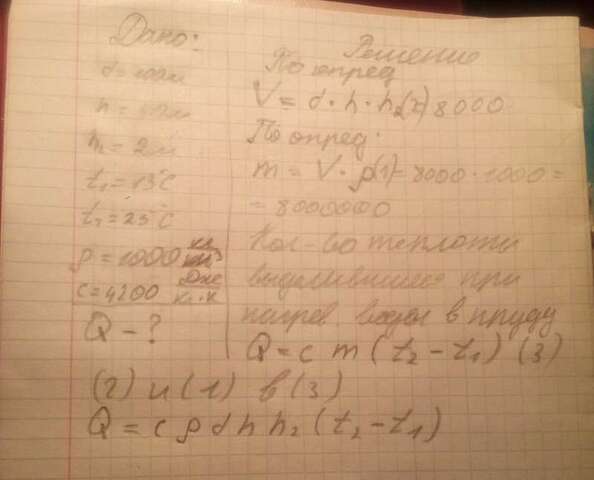 Дано:
d = 100м
h = 40м
h₂ = 2м
t₁ = 13°C
t₂ = 25°C
ρ = 1000 кг/м³
c = 4200 Дж/кг·К
Q - ?
Решение
По опред
V = d · h · h₂(2) 8000
По опред.
m = V · ρ(1) = 8000 · 1000 =
= 8000000
Кол-во теплоты
выделившиеся при
нагрев. воды в пруду
Q = c m (t₂ - t₁) (3)
(2) и (1) в (3)
Q = c ρ d h h₂ (t₂ - t₁)